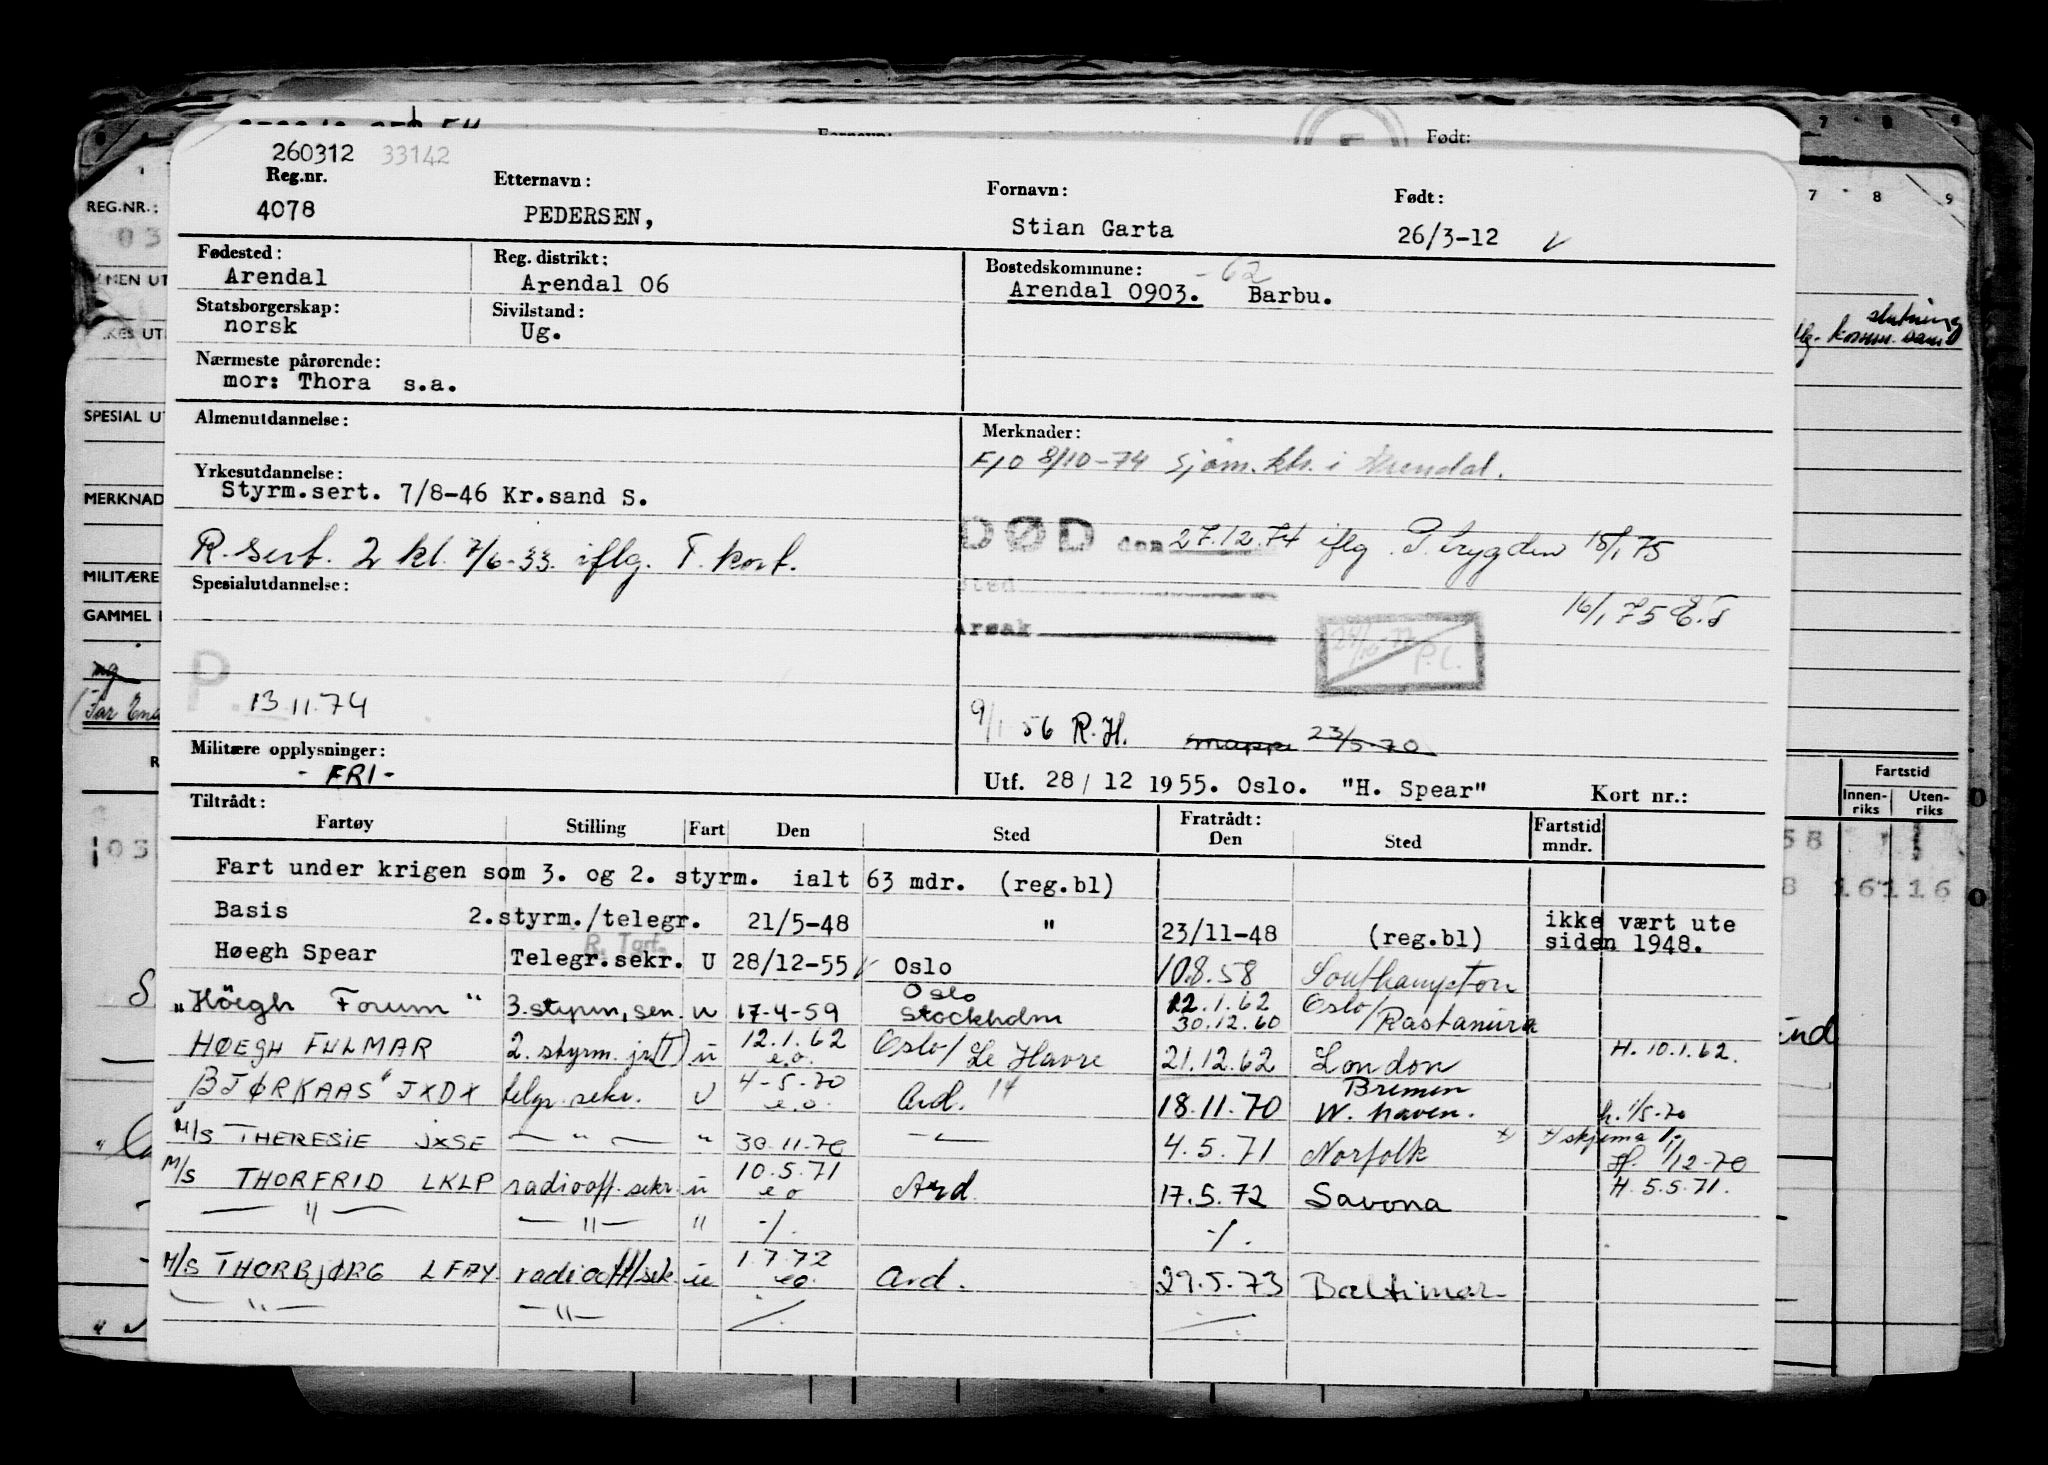 260312 33142
Reg.nr. Etternavn: Fornavn: Født:
4078 PEDERSEN, Stian Garta 26/3-12 v
Fødested: Reg. distrikt: Bostedskommune: -62
Arendal Arendal 06 Arendal 0903. Barbu.
Statsborgerskap: Sivilstand:
norsk Ug.
Nærmeste pårørende:
mor: Thora s.a.
Almenutdannelse: Merknader:
8/10-74 sjøm.ktr. i Arendal.
Yrkesutdannelse:
Styrm.sert. 7/8-46 Kr.sand S.
R. sert. 2 kl. 7/6-33 iflg. T. kort.
DØD den 27.12.74 iflg. P. trygden 15/1 75
Sted
16/1 75 E.T
Årsak
Spesialutdannelse:
P. 13 11.74
9/1 56 R.H. mappe 23/5-70
Militære opplysninger:
- FRI -
Utf. 28/12 1955. Oslo. "H. Spear" Kort nr.:
Tiltrådt: Fratrådt:
Fartøy Stilling Fart Den Sted Den Sted Fartstid mndr.
Fart under krigen som 3. og 2. styrm. ialt 63 mdr. (reg.bl)
Basis 2.styrm./telegr. 21/5-48 " 23/11-48 (reg.bl) ikke vært ute siden 1948.
R. Tort.
Høegh Spear Telegr.sekr. U 28/12-55 v Oslo 10.8.58 Southampton
"Höegh Forum" 3. styrm, sen. u 17-4-59 Oslo Stockholm 12.1.62 30.12.60 Oslo/ Rastanura
HØEGH FULMAR 2. styrm. jr(T) u 12.1.62 e.o. Oslo/ Le Havre 21.12.62 London H. 10.1.62.
"BJØRKAAS" JXDX telgr. sekr. U 4-5-70 e.o. Ard. 14 18.11.70 Bremen W. haven. h. 1/5-70
M/S THERESIE JXSE — " — " 30.11.70 — " — 4.5.71 Norfolk x) x) skjema 1/1
H. 1/12-70
M/S THORFRID LKLP radiooff. sekr. u 10.5.71 e o Ard. 17.5.72 Savona H. 5.5.71.
— " — — " — " -/. -/.
M/S THORBJØRG LFPY radiooff/sek. u 1.7.72 eo. Ard. 29.5.73 Baltimor
— " — — " — -/. -/.
REG.NR.:
03
SPESIAL UT
MERKNAD
MILITÆRE
GAMMEL
Født:
7 8 9
slutning
iflg. komm. sam
Fartstid
Innen-riks Uten-riks